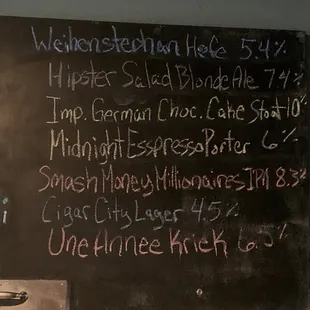 Weihenstephan Hefe 5.4%
Hipster Salad Blonde Ale 7.4%
Imp. German Choc. Cake Stout 10%
Midnight Esspresso Porter 6%
Smash Money Millionaires IPA 8.3%
Cigar City Lager 4.5%
Une Annee Kriek 6.5%